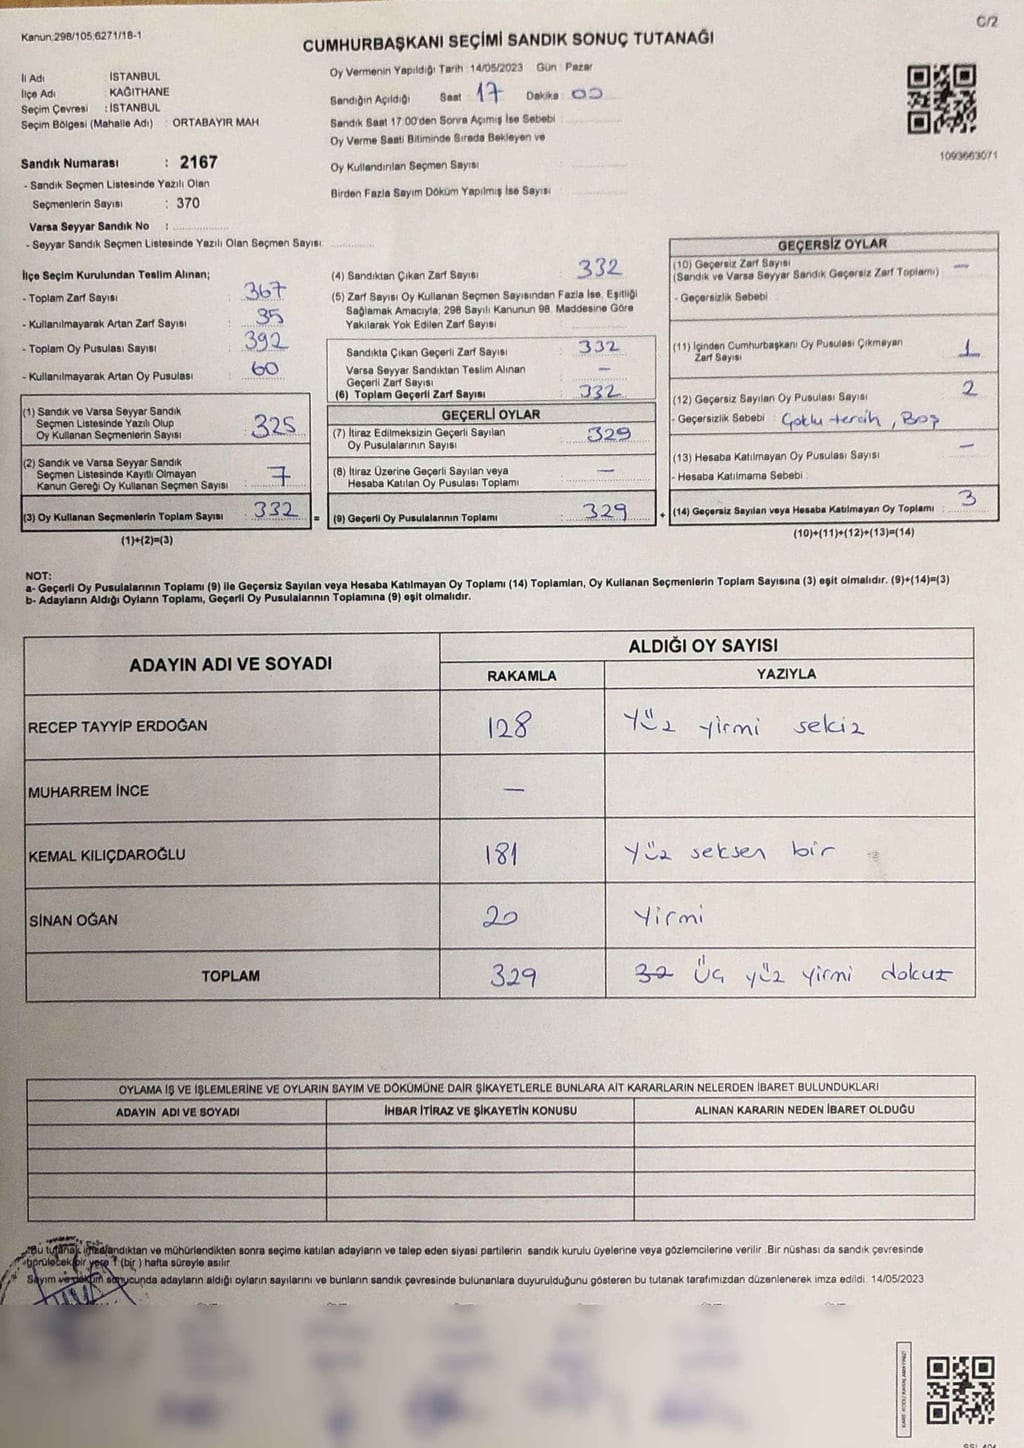 Kanun;298/105;6271/18-1
C/2
CUMHURBAŞKANI SEÇİMİ SANDIK SONUÇ TUTANAĞI
İl Adı : İSTANBUL
İlçe Adı : KAĞITHANE
Seçim Çevresi : İSTANBUL
Seçim Bölgesi (Mahalle Adı) : ORTABAYIR MAH.
Sandık Numarası : 2167
- Sandık Seçmen Listesinde Yazılı Olan
Seçmenlerin Sayısı : 370
Varsa Seyyar Sandık No :
- Seyyar Sandık Seçmen Listesinde Yazılı Olan Seçmen Sayısı:
Oy Vermenin Yapıldığı Tarih : 14/05/2023 Gün : Pazar
Sandığın Açıldığı Saat : 17 Dakika : 00
Sandık Saat 17:00'den Sonra Açımış İse Sebebi :
Oy Verme Saati Bitiminde Sırada Bekleyen ve
Oy Kullandırılan Seçmen Sayısı :
Birden Fazla Sayım Döküm Yapılmış İse Sayısı :
1093663071
İlçe Seçim Kurulundan Teslim Alınan;
- Toplam Zarf Sayısı : 367
- Kullanılmayarak Artan Zarf Sayısı : 35
- Toplam Oy Pusulası Sayısı : 392
- Kullanılmayarak Artan Oy Pusulası : 60
(1) Sandık ve Varsa Seyyar Sandık
Seçmen Listesinde Yazılı Olup
Oy Kullanan Seçmenlerin Sayısı : 325
(2) Sandık ve Varsa Seyyar Sandık
Seçmen Listesinde Kayıtlı Olmayan
Kanun Gereği Oy Kullanan Seçmen Sayısı : 7
(3) Oy Kullanan Seçmenlerin Toplam Sayısı : 332
(1)+(2)=(3)
=
(4) Sandıktan Çıkan Zarf Sayısı : 332
(5) Zarf Sayısı Oy Kullanan Seçmen Sayısından Fazla İse, Eşitliği
Sağlamak Amacıyla, 298 Sayılı Kanunun 98. Maddesine Göre
Yakılarak Yok Edilen Zarf Sayısı :
Sandıkta Çıkan Geçerli Zarf Sayısı : 332
Varsa Seyyar Sandıktan Teslim Alınan
Geçerli Zarf Sayısı : —
(6) Toplam Geçerli Zarf Sayısı : 332
GEÇERLİ OYLAR
(7) İtiraz Edilmeksizin Geçerli Sayılan
Oy Pusulalarının Sayısı : 329
(8) İtiraz Üzerine Geçerli Sayılan veya
Hesaba Katılan Oy Pusulası Toplamı : —
(9) Geçerli Oy Pusulalarının Toplamı : 329
+
GEÇERSİZ OYLAR
(10) Geçersiz Zarf Sayısı
(Sandık ve Varsa Seyyar Sandık Geçersiz Zarf Toplamı) : —
- Geçersizlik Sebebi :
(11) İçinden Cumhurbaşkanı Oy Pusulası Çıkmayan
Zarf Sayısı : 1
(12) Geçersiz Sayılan Oy Pusulası Sayısı : 2
- Geçersizlik Sebebi : Çoklu tercih, Boş
(13) Hesaba Katılmayan Oy Pusulası Sayısı : —
- Hesaba Katılmama Sebebi :
(14) Geçersiz Sayılan veya Hesaba Katılmayan Oy Toplamı : 3
(10)+(11)+(12)+(13)=(14)
NOT:
a- Geçerli Oy Pusulalarının Toplamı (9) ile Geçersiz Sayılan veya Hesaba Katılmayan Oy Toplamı (14) Toplamları, Oy Kullanan Seçmenlerin Toplam Sayısına (3) eşit olmalıdır. (9)+(14)=(3)
b- Adayların Aldığı Oyların Toplamı, Geçerli Oy Pusulalarının Toplamına (9) eşit olmalıdır.
ADAYIN ADI VE SOYADI
ALDIĞI OY SAYISI
RAKAMLA YAZIYLA
RECEP TAYYİP ERDOĞAN 128 Yüz yirmi sekiz
MUHARREM İNCE —
KEMAL KILIÇDAROĞLU 181 Yüz seksen bir
SİNAN OĞAN 20 Yirmi
TOPLAM 329 32 Üç yüz yirmi dokuz
OYLAMA İŞ VE İŞLEMLERİNE VE OYLARIN SAYIM VE DÖKÜMÜNE DAİR ŞİKAYETLERLE BUNLARA AİT KARARLARIN NELERDEN İBARET BULUNDUKLARI
ADAYIN ADI VE SOYADI İHBAR İTİRAZ VE ŞİKAYETİN KONUSU ALINAN KARARIN NEDEN İBARET OLDUĞU
*Bu tutanak imzalandıktan ve mühürlendikten sonra seçime katılan adayların ve talep eden siyasi partilerin sandık kurulu üyelerine veya gözlemcilerine verilir. Bir nüshası da sandık çevresinde
görülecek bir yere 1 (bir) hafta süreyle asılır.
Sayım ve döküm sonucunda adayların aldığı oyların sayılarını ve bunların sandık çevresinde bulunanlara duyurulduğunu gösteren bu tutanak tarafımızdan düzenlenerek imza edildi. 14/05/2023